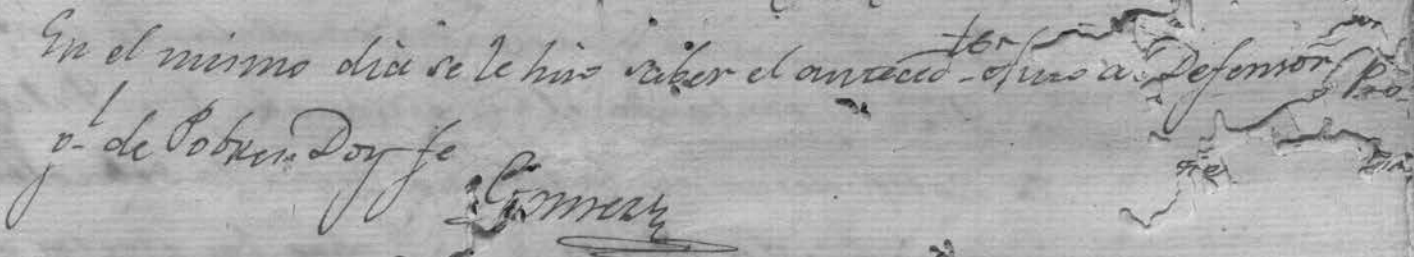 En el mismo dia se le hiso saber el anteced.te auto a Defensor Pro-
g.l de Pobres Doy fe
Gomez